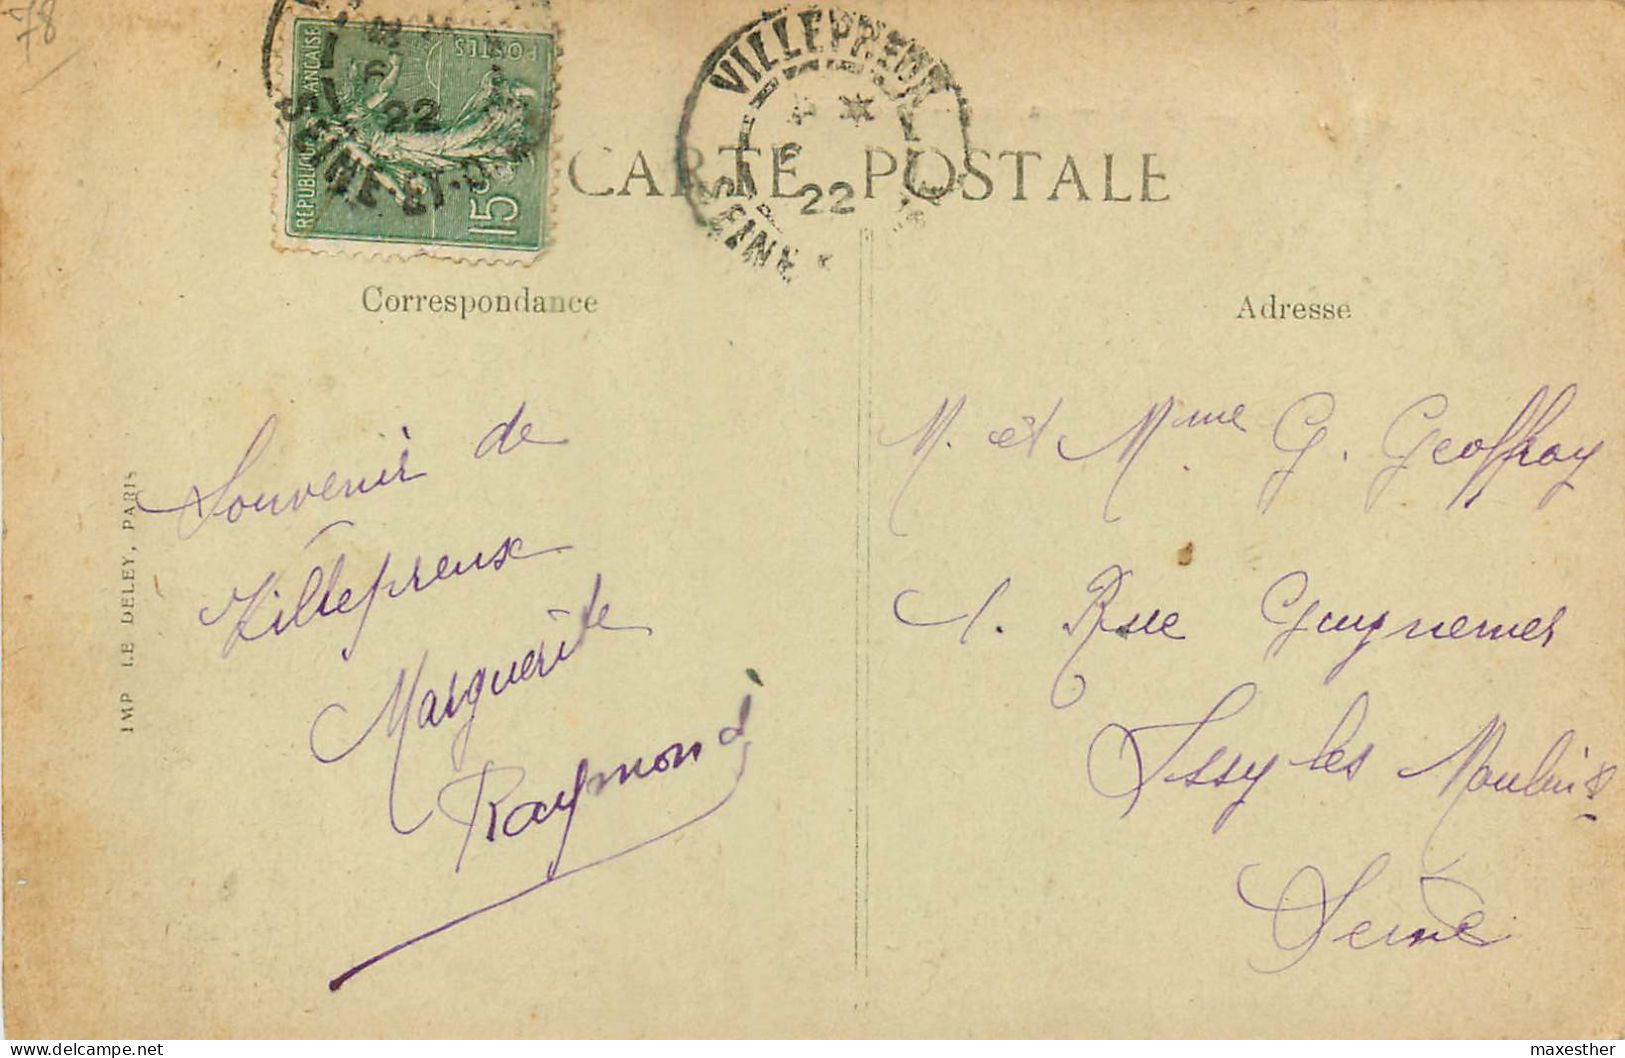 78
RÉPUBLIQUE FRANÇAISE
POSTES
15c
6
22
SEINE-ET-OISE
VILLEPREUX
6
22
SEINE
CARTE POSTALE
Correspondance
Souvenir de
Villepreux
Marguerite
Raymond
IMP LE DELEY, PARIS
Adresse
M. et Mme G. Geoffroy
1. Rue Guynemer
Issy les Moulins
Seine
maxesther